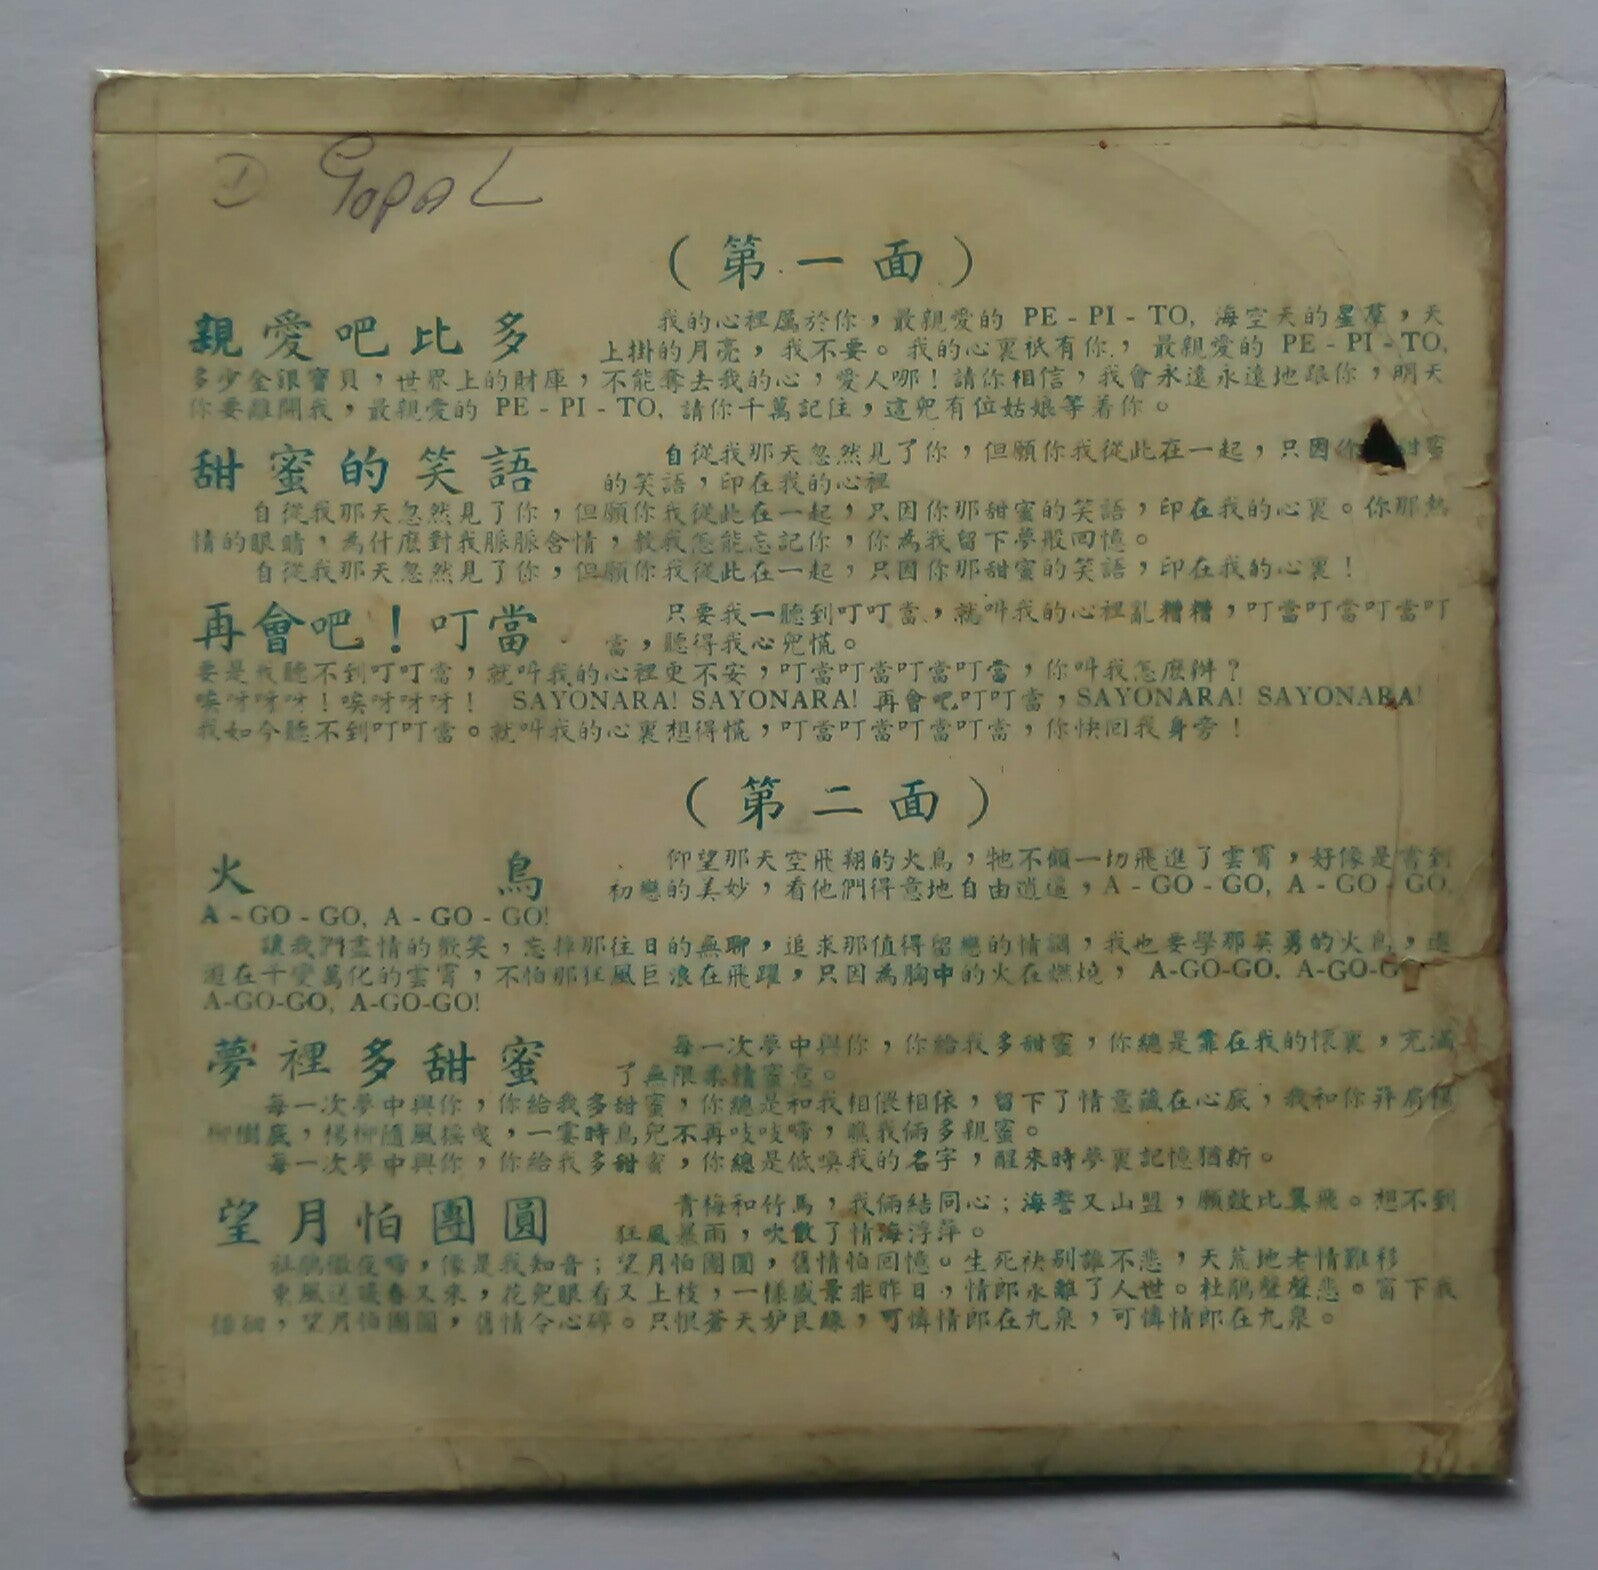 ① Gopal
（第一面）
親愛吧比多
我的心裡屬於你，最親愛的 PE - PI - TO, 海空天的星羣，天
上掛的月亮，我不要。我的心裏祇有你，最親愛的 PE - PI - TO,
多少金銀寶貝，世界上的財庫，不能奪去我的心，愛人哪！請你相信，我會永遠永遠地跟你，明天
你要離開我，最親愛的 PE - PI - TO, 請你千萬記住，這兒有位姑娘等着你。
甜蜜的笑語
自從我那天忽然見了你，但願你我從此在一起，只因你 甜蜜
的笑語，印在我的心裡
自從我那天忽然見了你，但願你我從此在一起，只因你那甜蜜的笑語，印在我的心裏。你那熱
情的眼睛，為什麼對我脈脈含情，教我怎能忘記你，你為我留下夢般回憶。
自從我那天忽然見了你，但願你我從此在一起，只因你那甜蜜的笑語，印在我的心裏！
再會吧！叮當
只要我一聽到叮叮當，就叫我的心裡亂糟糟，叮當叮當叮當叮
當，聽得我心兒慌。
要是我聽不到叮叮當，就叫我的心裡更不安，叮當叮當叮當叮當，你叫我怎麼辦？
唉呀呀呀！唉呀呀呀！ SAYONARA! SAYONARA! 再會吧叮叮當，SAYONARA! SAYONARA!
我如今聽不到叮叮當。就叫我的心裏想得慌，叮當叮當叮當叮當，你快回我身旁！
（第二面）
火鳥
仰望那天空飛翔的火鳥，牠不顧一切飛進了雲霄，好像是嘗到
初戀的美妙，看他們得意地自由逍遙，A - GO - GO, A - GO - GO,
A - GO - GO, A - GO - GO!
讓我們盡情的歡笑，忘掉那往日的無聊，追求那值得留戀的情調，我也要學那英勇的火鳥，遨
遊在千變萬化的雲霄，不怕那狂風巨浪在飛躍，只因為胸中的火在燃燒， A-GO-GO, A-GO-G
A-GO-GO, A-GO-GO!
夢裡多甜蜜
每一次夢中與你，你給我多甜蜜，你總是靠在我的懷裏，充滿
了無限柔情蜜意。
每一次夢中與你，你給我多甜蜜，你總是和我相偎相依，留下了情意藏在心底，我和你并肩楊
柳樹底，楊柳隨風搖曳，一霎時鳥兒不再吱吱啼，瞧我倆多親蜜。
每一次夢中與你，你給我多甜蜜，你總是低喚我的名字，醒來時夢裏記憶猶新。
望月怕團圓
青梅和竹馬，我倆結同心；海誓又山盟，願效比翼飛。想不到
狂風暴雨，吹散了情海浮萍。
杜鵑徹夜啼，像是我知音；望月怕團圓，舊情怕回憶。生死袂别誰不悲，天荒地老情難移
東風送暖春又來，花兒眼看又上枝，一樣感景非昨日，情郎永離了人世。杜鵑聲聲悲。窗下我
徘徊，望月怕團圓，舊情令心碎。只恨蒼天妒良緣，可憐情郎在九泉，可憐情郎在九泉。